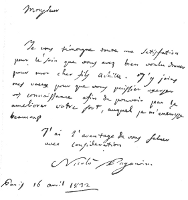 Monsieur
Je vous témoigne toute ma satisfaction
pour le soin que vous avez bien voulu donner
pour mon cher fils Achille. J'y joins
mes vœux pour que vous puissiez
connaissance afin de pouvoir par là
améliorer votre sort, auquel je m'intéresse
beaucoup
J'ai l'avantage de vous saluer
avec considération
Nicolò Paganini
Paris 16 avril